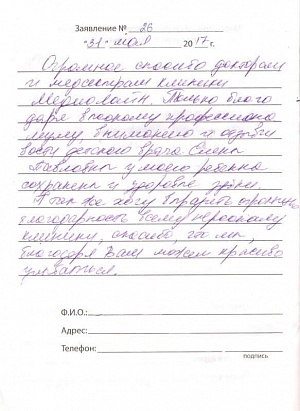 Заявление № 26
"31" мая 2017 г.
Огромное спасибо докторам
и медсестрам клиники
Медиолайн. Только благо
даря высокому профессиона
лизму, вниманию и
детского врача Елены
Павловны у моего ребенка
сохранены и здоровые зубки.
А так же хочу выразить огромную
благодарность всему персоналу
клиники, спасибо, что мы,
благодаря Вам можем красиво
улыбаться.
Ф.И.О.:
Адрес:
Телефон:
подпись